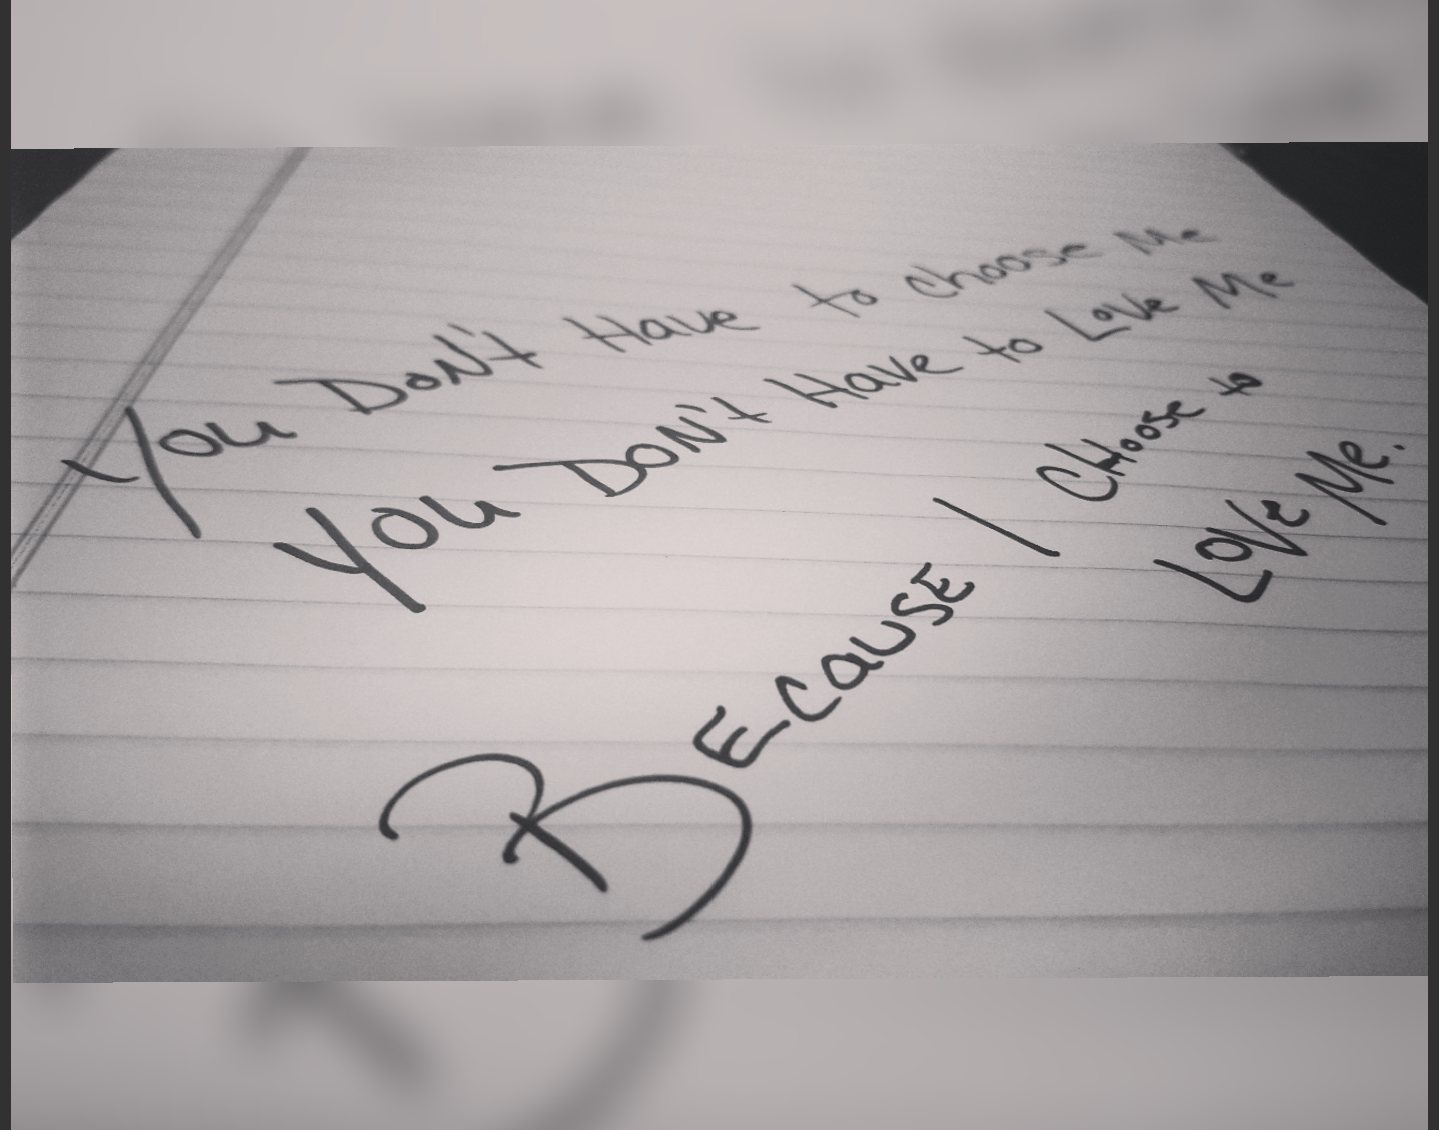 You DoN't Have to Choose Me
You DON't Have to Love Me
BECAUSE I CHoose to
LOVE Me.